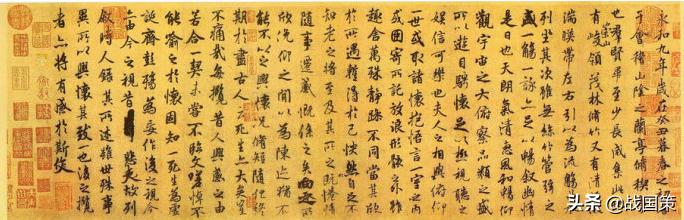 永和九年歲在癸丑暮春之初
于會稽山陰之蘭亭脩禊
也羣賢畢至少長咸集此
有崇山峻領茂林脩竹又有清
湍暎帶左右引以為流觴
列坐其次雖無絲竹管弦之
盛一觴一詠亦足以暢敘幽情
是日也天朗氣清惠風和暢仰
觀宇宙之大俯察品類之盛
所以遊目騁懷足以極視聽之
娛信可樂也夫人之相與俯仰
一世或取諸懷抱悟言一室之內
或因寄所託放浪形骸之外雖
趣舍萬殊靜躁不同當其欣
於所遇蹔得於己怏然自足不
知老之將至及其所之既惓情
隨事遷感慨係之矣向之所
欣俛仰之間以為陳迹猶不
能不以之興懷況脩短隨化終
期於盡古人云死生亦大矣豈
不痛哉每攬昔人興感之由
若合一契未嘗不臨文嗟悼不
能喻之於懷固知一死生為虛
誕齊彭殤為妄作後之視今
亦由今之視昔悲夫故列
敘時人錄其所述雖世殊事
異所以興懷其致一也後之攬
者亦將有感於斯文
头条 @战国策